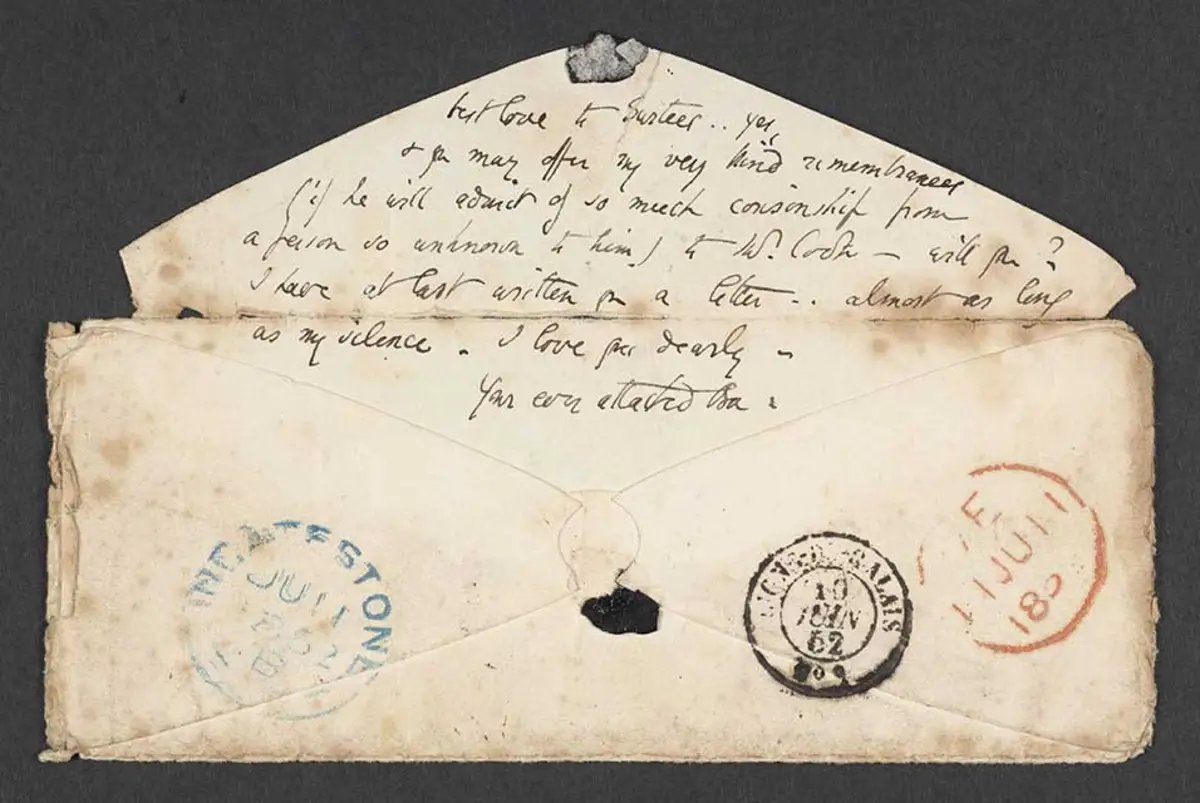 best love to Surtees .. yes,
& you may offer my very kind remembrances
(if he will admit of so much cousinship from
a person so unknown to him) to Mr. Cook — will you?
I have at last written you a letter .. almost as long
as my silence . I love you dearly —
Your ever attached Ba .
INGATESTONE
JU 11
CALAIS
10
JUIN
52
11 JU 11
185